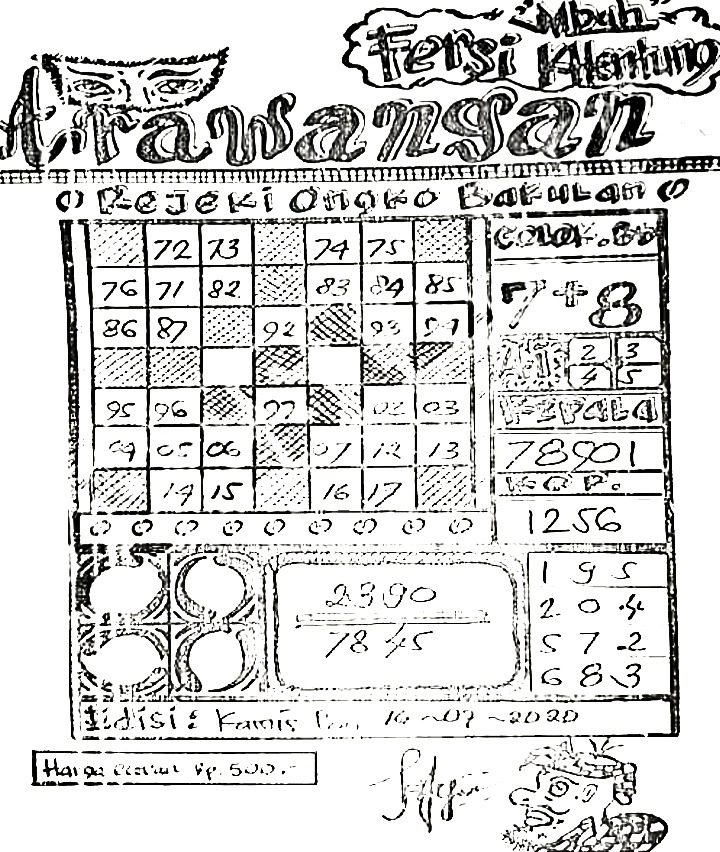 "Mbah"
Fersi Klentung
Arawangan
Rejeki Ongko Bakulan
72 73 74 75
76 71 82 83 84 85
86 87 92 93 94
95 96 97 02 03
04 05 06 07 12 13
14 15 16 17
COLOK.
7+8
2 3
4 5
KEPALA
78901
KOP.
1256
2390
7845
1 9 5
2 0 4
5 7 2
6 8 3
Edisi: Kamis 16-07-2020
Harga Rp. 500.-